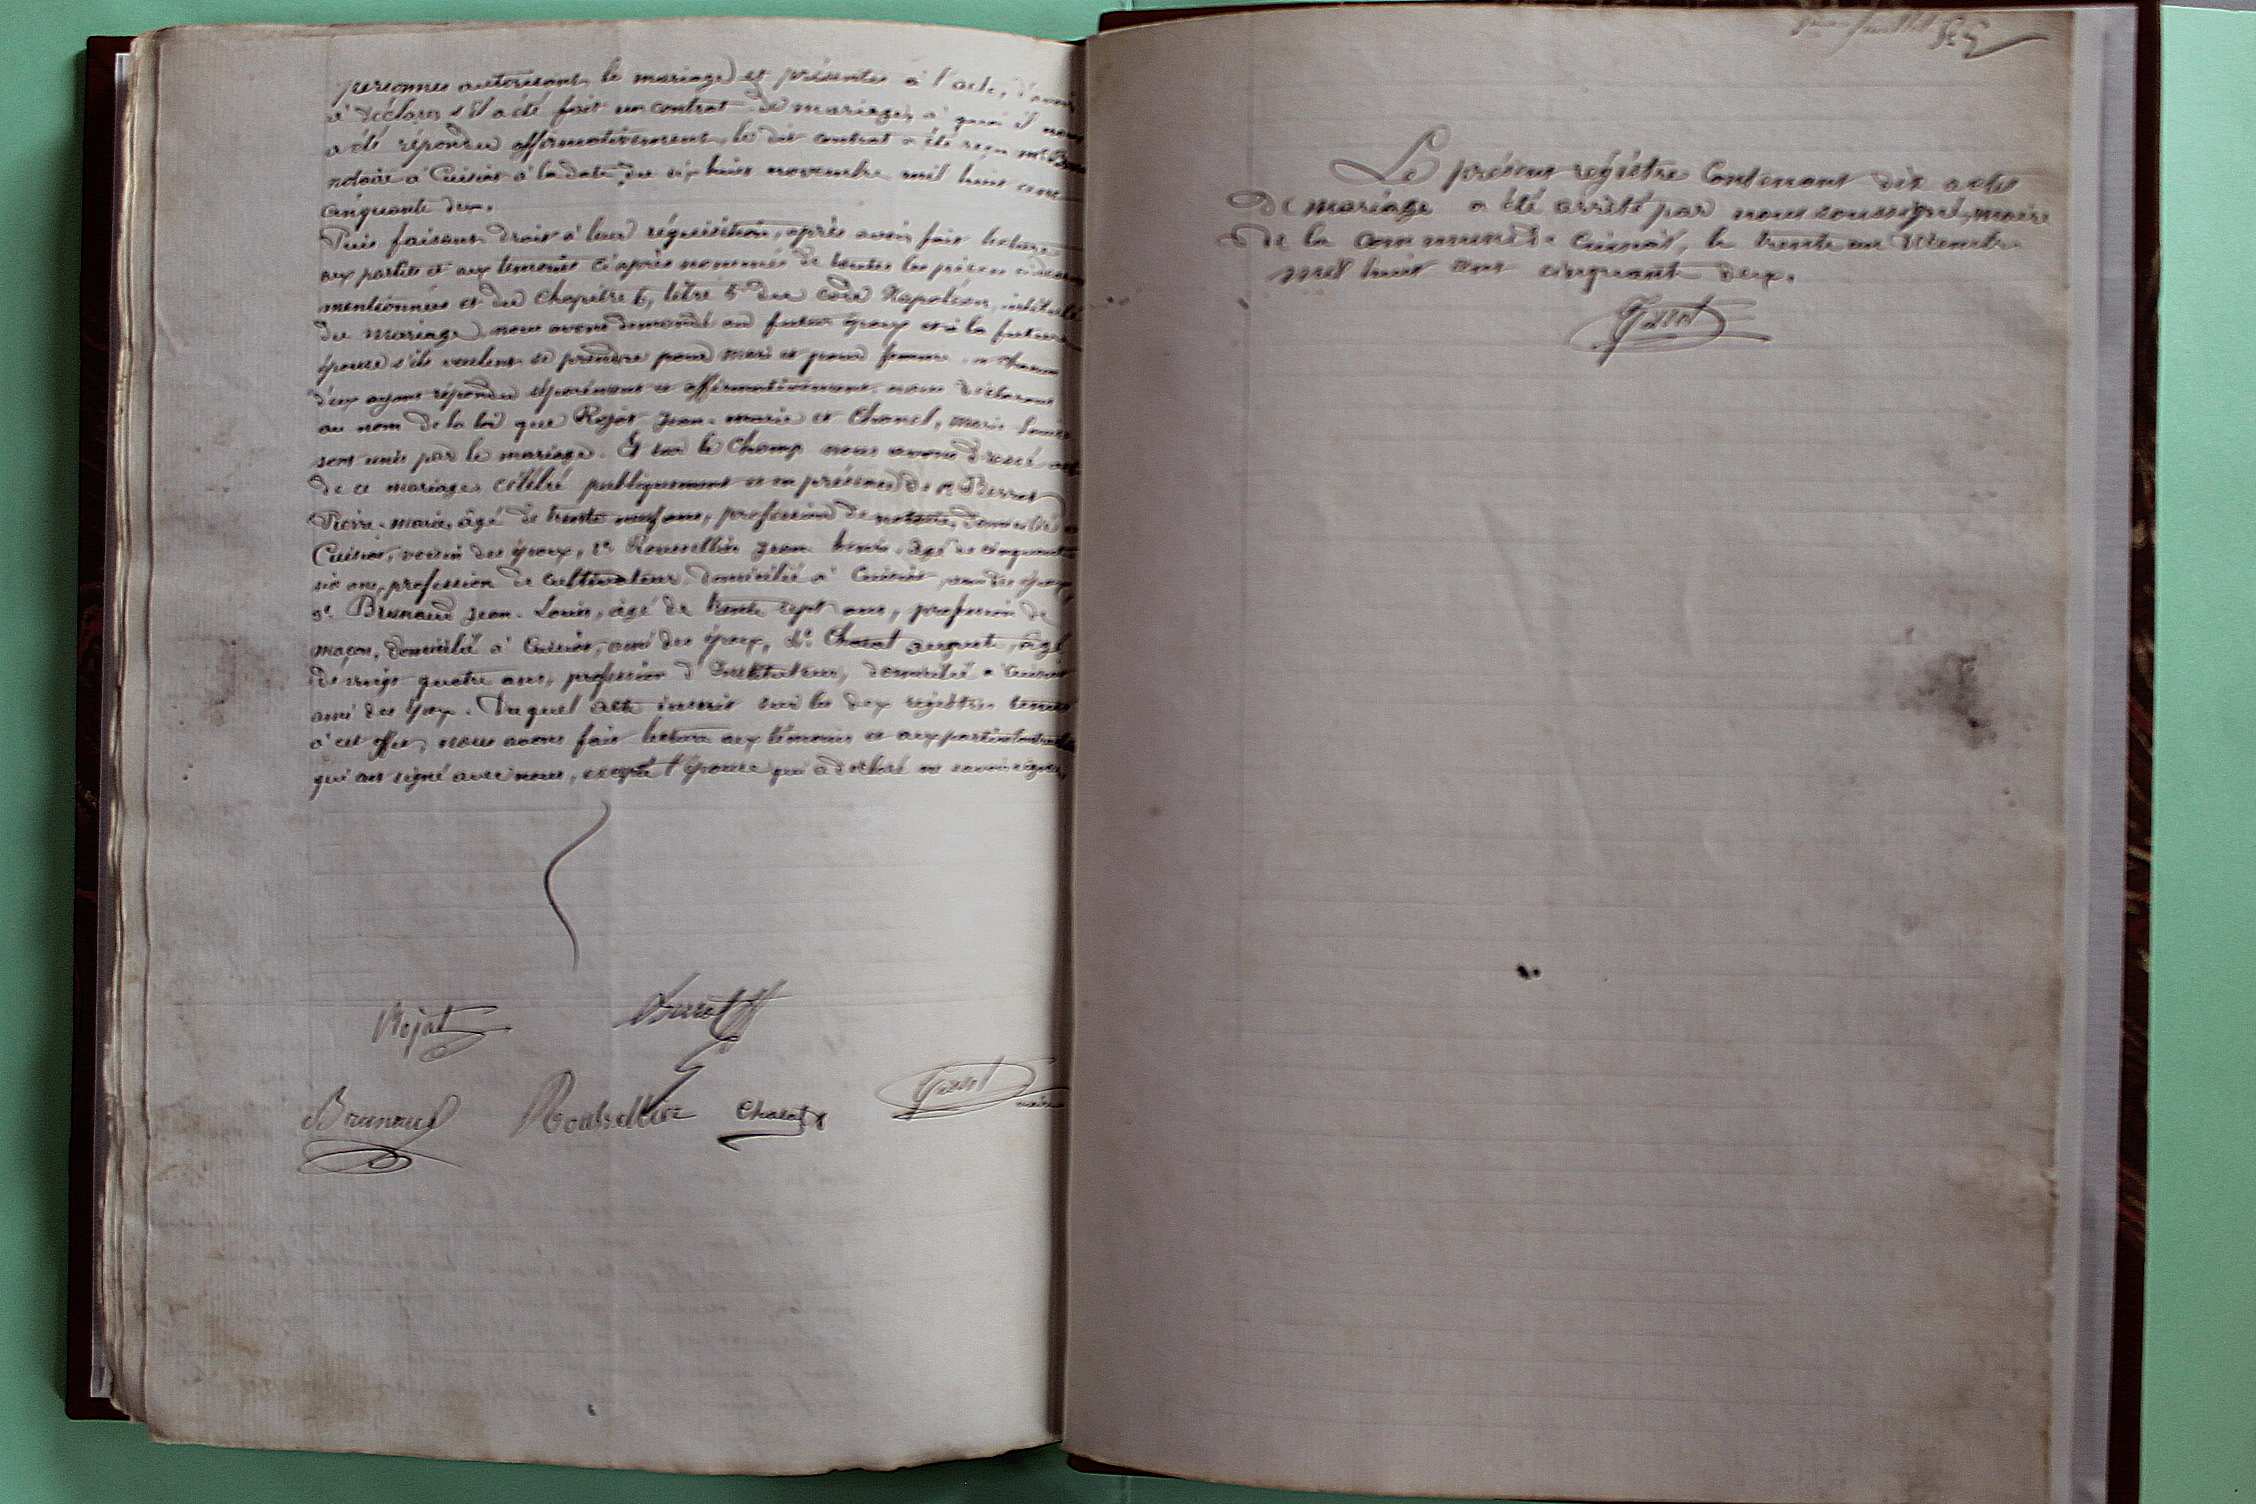 personnes autorisant le mariage et présentes à l'acte, d'avoir
à déclarer s'il a été fait un contrat de mariage, à quoi il nous
a été répondu affirmativement, le dit contrat a été reçu Me
notaire à Cuisiat à la date du dix huit novembre mil huit cent
cinquante deux.
Puis faisant droit à leur réquisition, après avoir fait lecture
aux parties et aux témoins ci après nommés de toutes les pièces ci dessus
mentionnées et du chapitre 6, titre 5 du code Napoléon, intitulé
du mariage, nous avons demandé au futur époux et à la future
épouse s'ils veulent se prendre pour mari et pour femme chacun
d'eux ayant répondu séparément et affirmativement, nous déclarons
au nom de la loi que Rojat Jean-marie et Chanel, marie Louise
sont unis par le mariage. Et sur le champ nous avons dressé acte
de ce mariage célébré publiquement et en présence de Perret
Pierre-marie, âgé de trente neuf ans, profession de notaire, domicilié à
Cuisiat, voisin des époux, 2e Roussellier Jean-Louis, âgé de cinquante
six ans, profession de cultivateur, domicilié à Cuisiat, ami des époux,
3e Brunaud Jean-Louis, âgé de trente sept ans, profession de
maçon, domicilié à Cuisiat, ami des époux, 4e Chatat auguste, âgé
de vingt quatre ans, profession d'Instituteur, domicilié à Cuisiat
ami des époux. Duquel acte inscrit sur les deux registres tenus
à cet effet, nous avons fait lecture aux témoins et aux parties
qui ont signé avec nous, excepté l'épouse qui a déclaré ne savoir signer.
Rojat
Brunaud Roussellier Chatat
maire
feuillet
Le présent régistre Contenant dix actes
de mariage a été arrêté par nous soussigné, maire
de la commune de Cuisiat, le trente un décembre
mil huit cent cinquante deux.